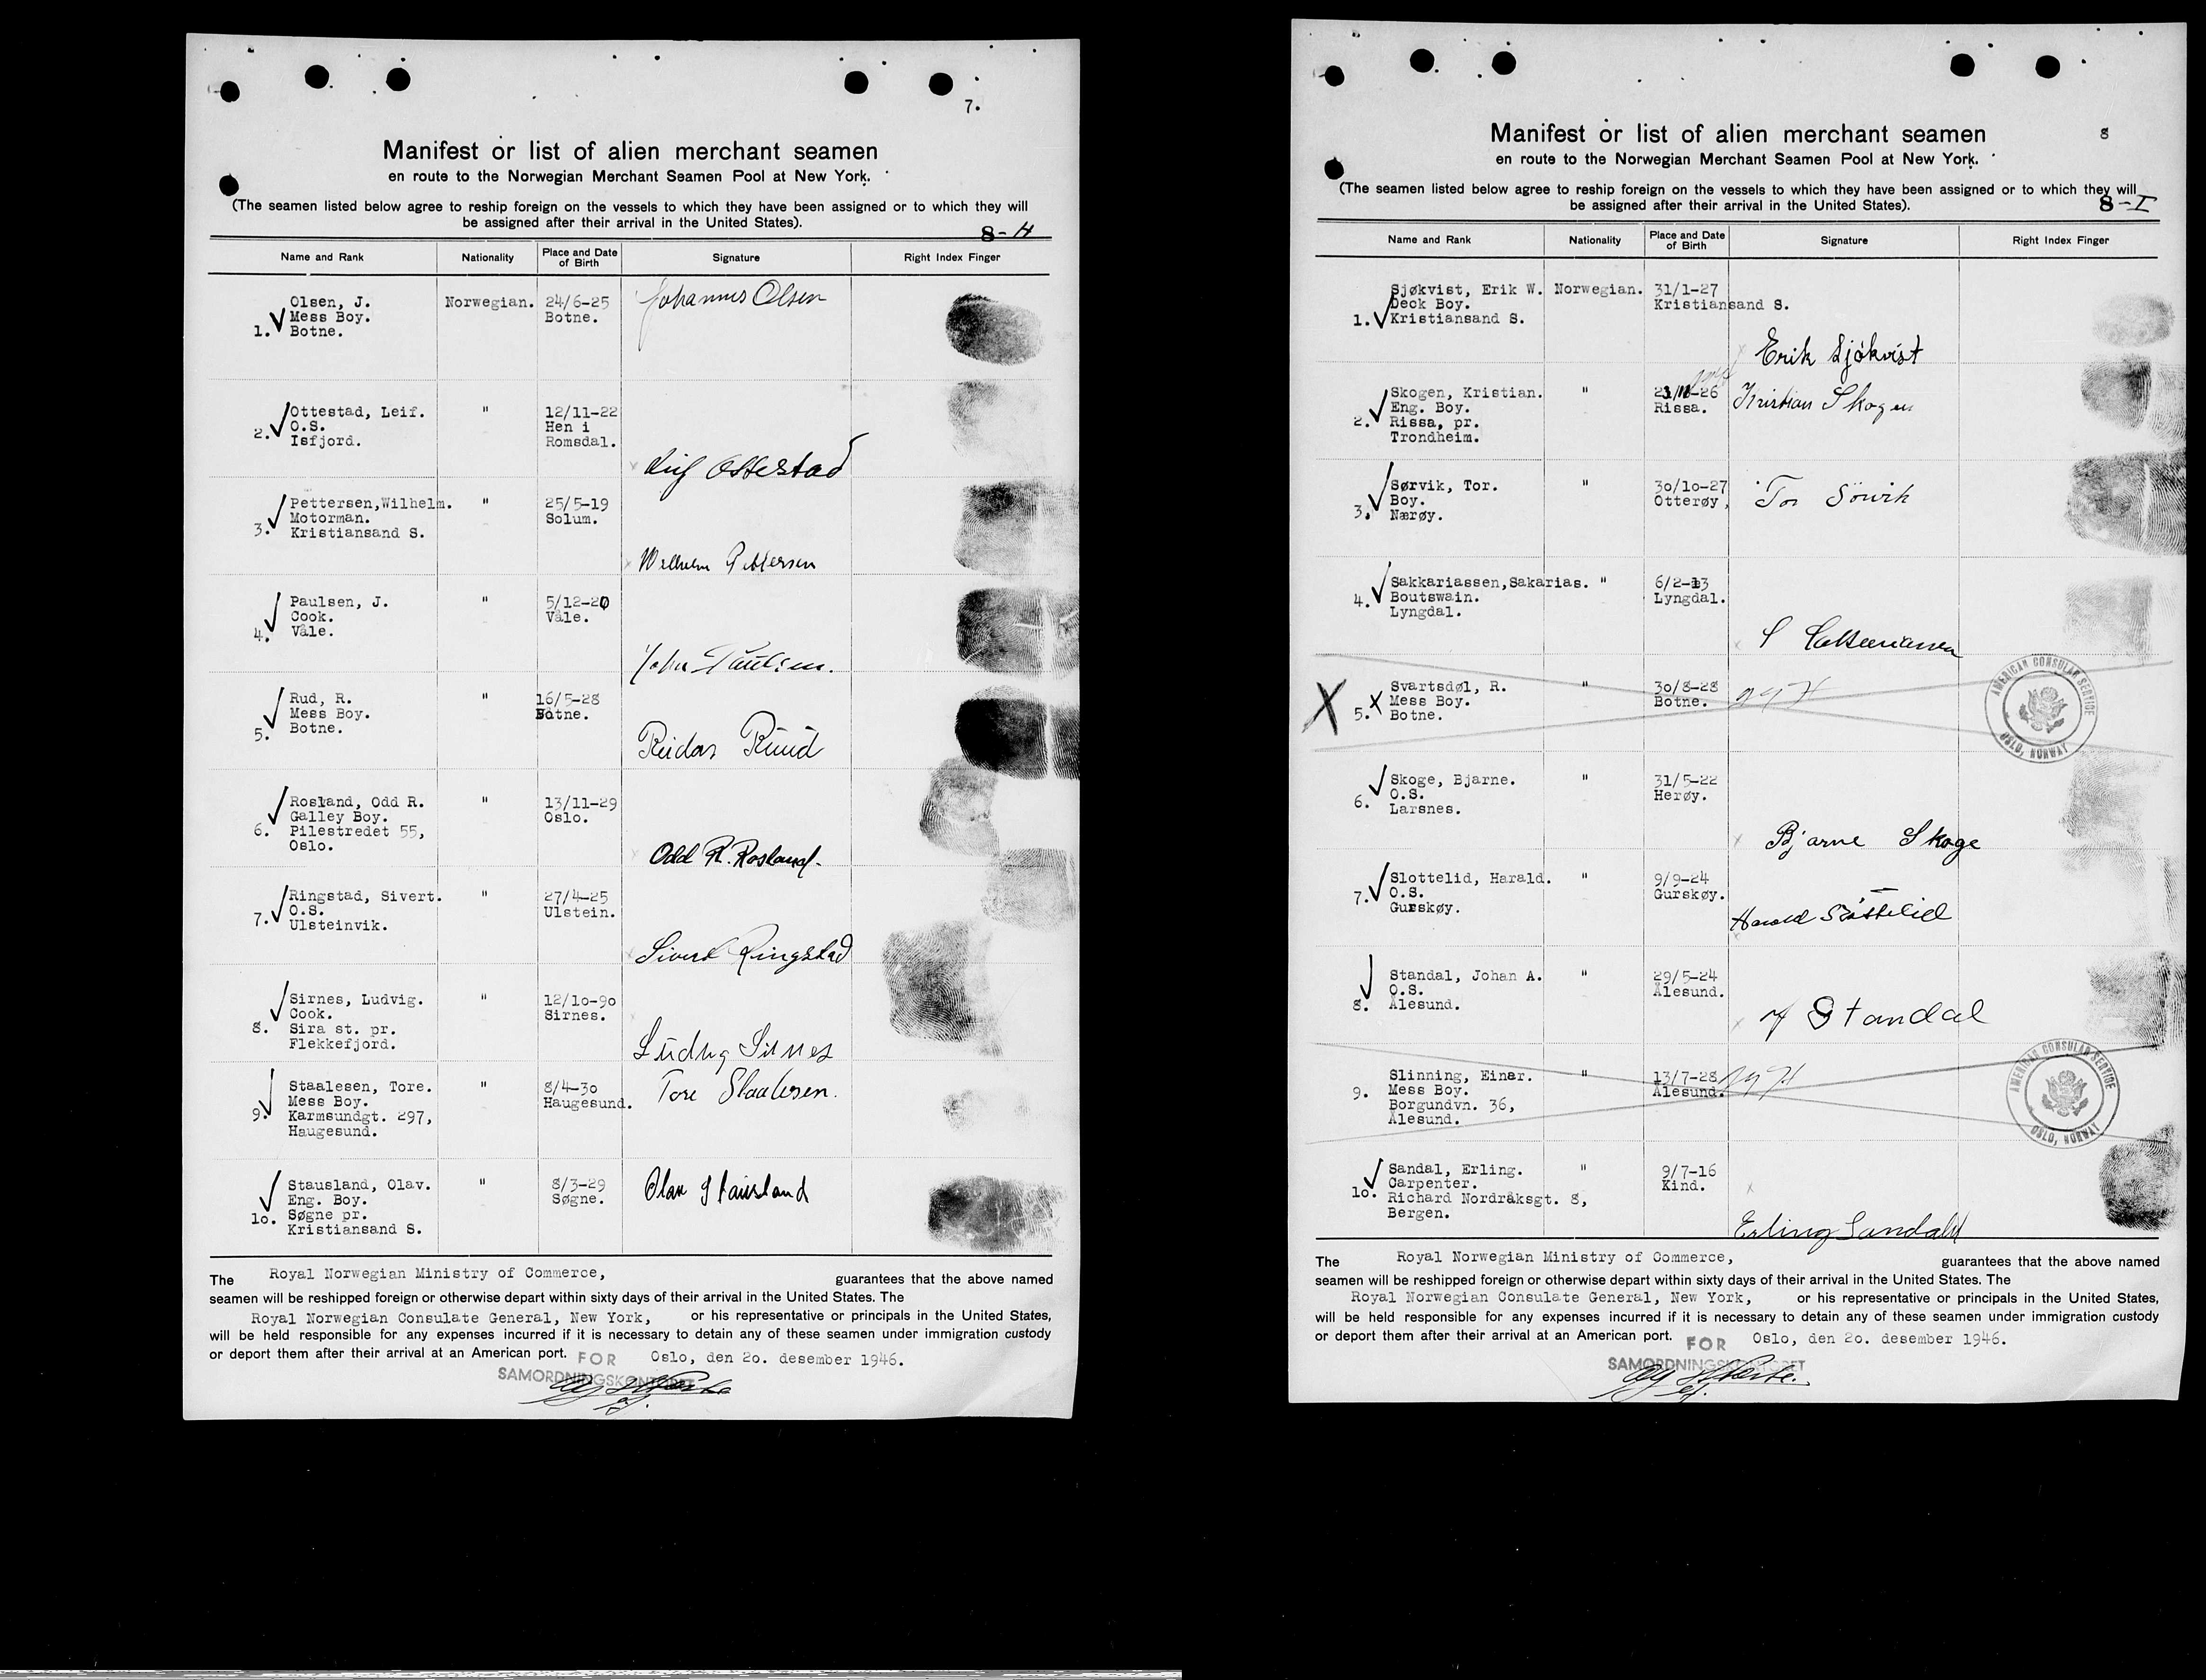 7.
Manifest or list of alien merchant seamen
en route to the Norwegian Merchant Seamen Pool at New York.
(The seamen listed below agree to reship foreign on the vessels to which they have been assigned or to which they will
be assigned after their arrival in the United States).
8-H
Name and Rank Nationality Place and Date of Birth Signature Right Index Finger
Olsen, J. Norwegian. 24/6-25 Johannes Olsen
Mess Boy. Botne.
1. Botne.
Ottestad, Leif. " 12/11-22
2. O.S. Hen i
Isfjord. Romsdal.
Leif Ottestad
Pettersen,Wilhelm. " 25/5-19
Motorman. Solum.
3. Kristiansand S.
Wilhelm Pettersen
Paulsen, J. " 5/12-20
Cook. Våle.
4. Våle.
John Paulsen.
Rud, R. " 16/5-28
Mess Boy. Botne.
5. Botne.
Reidar Ruud
Rosland, Odd R. " 13/11-29
Galley Boy. Oslo.
6. Pilestredet 55,
Oslo.
Odd R. Rosland.
Ringstad, Sivert. " 27/4-25
7. O.S. Ulstein.
Ulsteinvik.
Sivert Ringstad
Sirnes, Ludvig. " 12/10-90
Cook. Sirnes.
8. Sira st. pr.
Flekkefjord.
Ludvig Sirnes
Staalesen, Tore. " 8/4-30 Tore Staalesen.
Mess Boy. Haugesund.
9. Karmsundgt. 297,
Haugesund.
Stausland, Olav. " 8/3-29 Olav Stausland
Eng. Boy. Søgne.
10. Søgne pr.
Kristiansand S.
The Royal Norwegian Ministry of Commerce, guarantees that the above named
seamen will be reshipped foreign or otherwise depart within sixty days of their arrival in the United States. The
Royal Norwegian Consulate General, New York, or his representative or principals in the United States,
will be held responsible for any expenses incurred if it is necessary to detain any of these seamen under immigration custody
or deport them after their arrival at an American port. FOR Oslo, den 20. desember 1946.
SAMORDNINGSKONTORET
8
Manifest or list of alien merchant seamen
en route to the Norwegian Merchant Seamen Pool at New York.
(The seamen listed below agree to reship foreign on the vessels to which they have been assigned or to which they will
be assigned after their arrival in the United States).
8-I
Name and Rank Nationality Place and Date of Birth Signature Right Index Finger
Sjøkvist, Erik W. Norwegian. 31/1-27
Deck Boy. Kristiansand S.
1. Kristiansand S.
Erik Sjøkvist
Skogen, Kristian. " Kristian Skogen
Eng. Boy. Rissa.
2. Rissa, pr.
Trondheim.
Sørvik, Tor. " 30/10-27 Tor Sörvik
Boy. Otterøy,
3. Nærøy.
Sakkariassen,Sakarias. " 6/2-13
4. Boutswain. Lyngdal.
Lyngdal.
Svartsdøl, R. " 30/8-28
X 5. X Mess Boy. Botne.
Botne.
AMERICAN CONSULAR SERVICE
OSLO, NORWAY
Skoge, Bjarne. " 31/5-22
6. O.S. Herøy.
Larsnes.
Bjarne Skoge
Slottelid, Harald. " 9/9-24
7. O.S. Gurskøy.
Gurskøy.
Harald Slottelid
Standal, Johan A. " 29/5-24
O.S. Ålesund.
8. Ålesund.
J Standal
Slinning, Einar. " 13/7-28
9. Mess Boy. Ålesund.
Borgundvn. 36,
Ålesund.
AMERICAN CONSULAR SERVICE
OSLO, NORWAY
Sandal, Erling. " 9/7-16
Carpenter. Kind.
10. Richard Nordråksgt. 8,
Bergen.
Erling Sandal
The Royal Norwegian Ministry of Commerce, guarantees that the above named
seamen will be reshipped foreign or otherwise depart within sixty days of their arrival in the United States. The
Royal Norwegian Consulate General, New York, or his representative or principals in the United States,
will be held responsible for any expenses incurred if it is necessary to detain any of these seamen under immigration custody
or deport them after their arrival at an American port. FOR Oslo, den 20. desember 1946.
SAMORDNINGSKONTORET